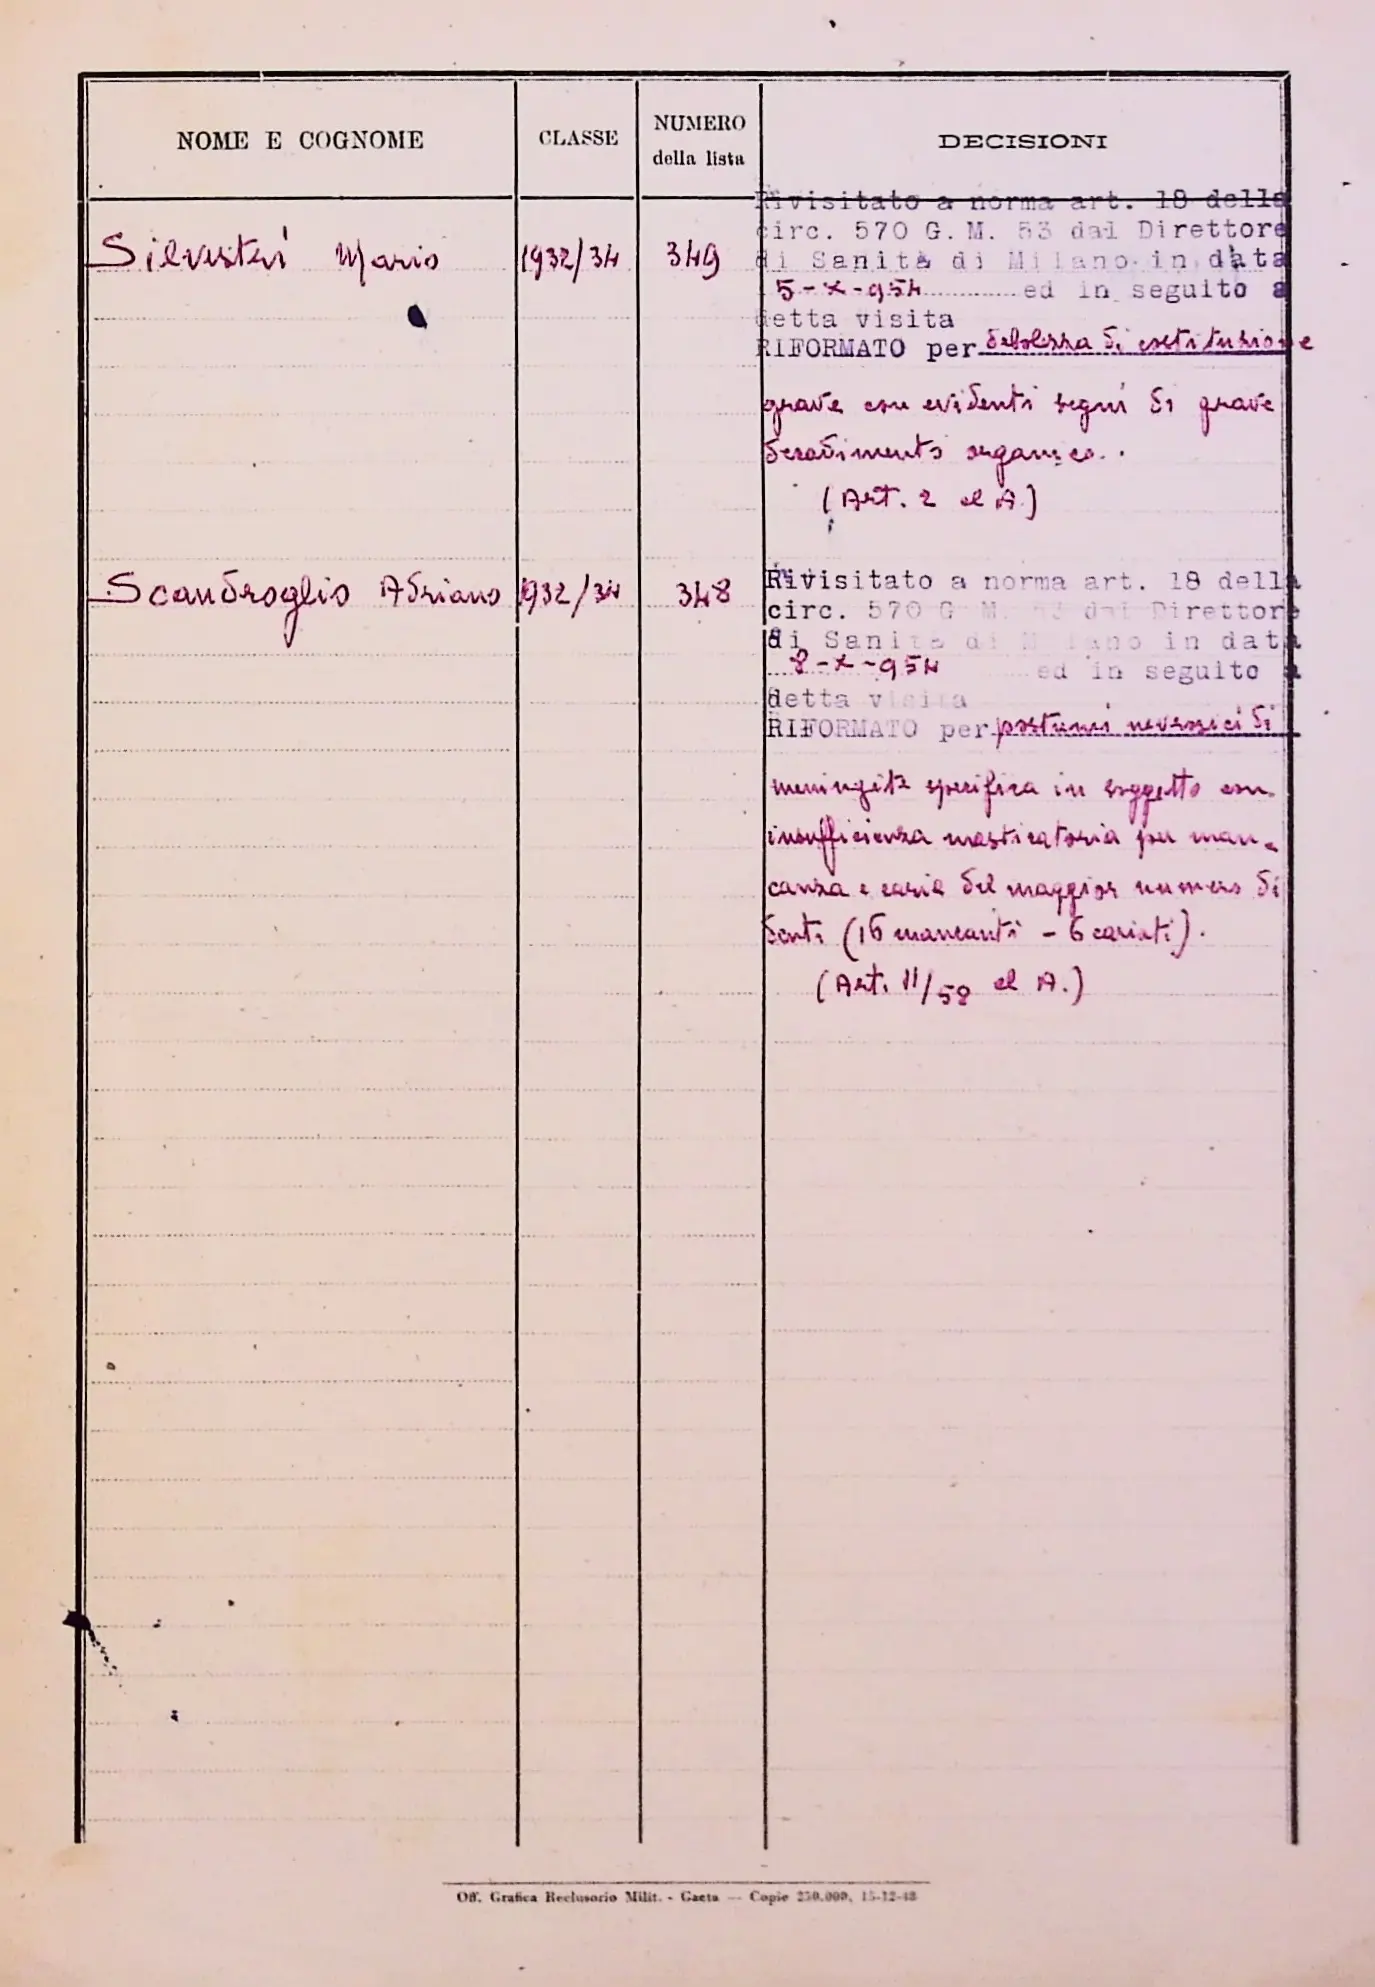 NOME E COGNOME
CLASSE
NUMERO
della lista
DECISIONI
Silvestri Mario
1932/34
349
Rivisitato a norma art. 18 della
circ. 570 G.M. 53 dal Direttore
di Sanità di Milano in data
5-X-954 ed in seguito a
detta visita
RIFORMATO per debolezza di costituzione
grave con evidenti segni di grave
decadimento organico.
(Art. 2 el A.)
Scandroglio Adriano
1932/34
348
Rivisitato a norma art. 18 della
circ. 570 G M. 53 dal Direttore
di Sanità di Milano in data
8-X-954 ed in seguito a
detta visita
RIFORMATO per postumi nevrosici di
meningite specifica in soggetto con
insufficienza masticatoria per man-
canza e carie del maggior numero di
denti (16 mancanti - 6 cariati).
(Art. 11/58 el A.)
Off. Grafica Reclusorio Milit. - Gaeta — Copie 250.000, 15-12-48